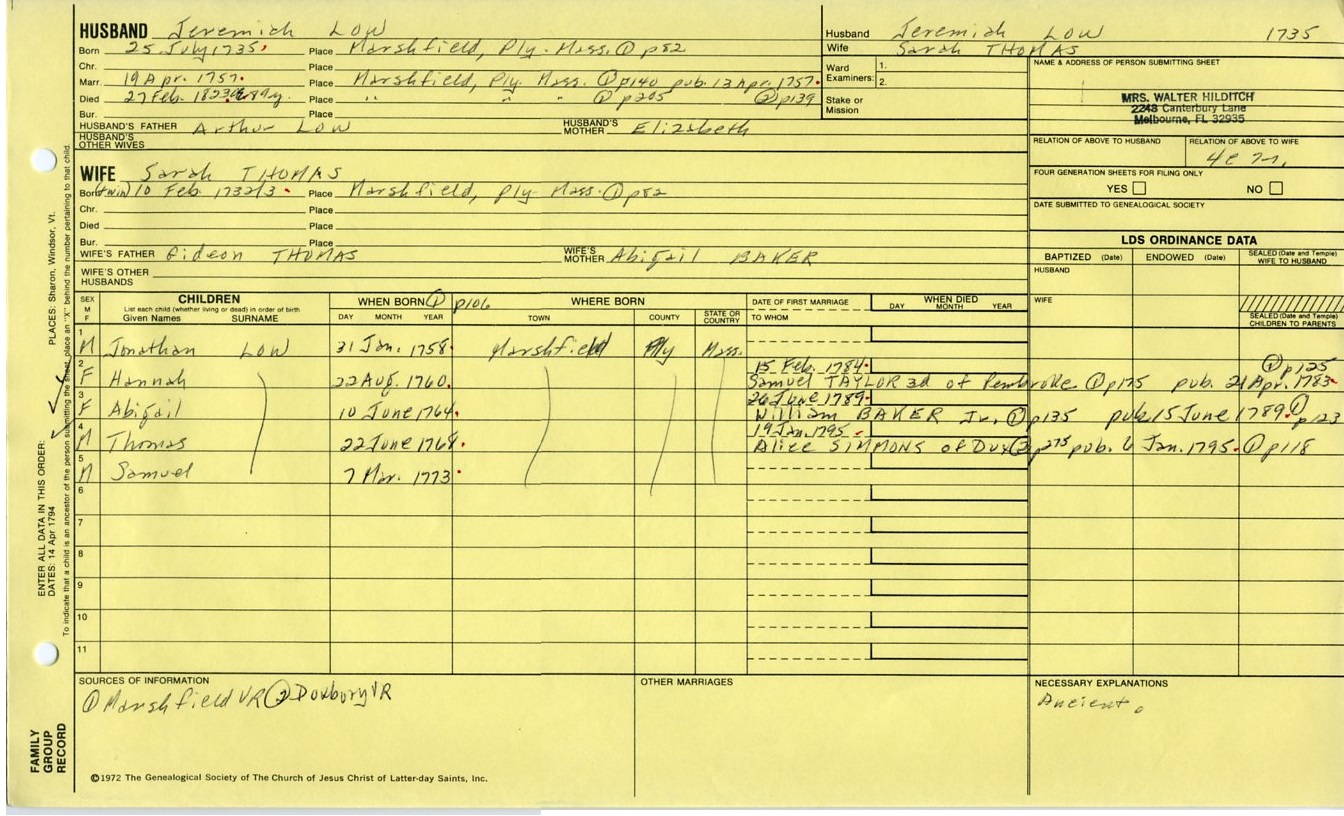 HUSBAND Jeremiah LOW
Born 25 July 1735. Place Marshfield, Ply. Mass. ① p82
Chr. Place
Marr. 19 Apr. 1757. Place Marshfield, Ply. Mass. ① p140 pub. 13 Apr. 1757.
Died 27 Feb. 1823 89y. Place " " " ① p205 ② p139
Bur. Place
HUSBAND'S FATHER Arthur LOW HUSBAND'S MOTHER Elizabeth
HUSBAND'S OTHER WIVES
WIFE Sarah THOMAS
Born (twin) 10 Feb. 1732/3. Place Marshfield, Ply. Mass. ① p82
Chr. Place
Died Place
Bur. Place
WIFE'S FATHER Gideon THOMAS WIFE'S MOTHER Abigail BAKER
WIFE'S OTHER HUSBANDS
Husband Jeremiah LOW 1735
Wife Sarah THOMAS
Ward Examiners: 1.
2.
Stake or Mission
NAME & ADDRESS OF PERSON SUBMITTING SHEET
MRS. WALTER HILDITCH
2248 Canterbury Lane
Melbourne, FL 32935
RELATION OF ABOVE TO HUSBAND RELATION OF ABOVE TO WIFE
FOUR GENERATION SHEETS FOR FILING ONLY
YES NO
DATE SUBMITTED TO GENEALOGICAL SOCIETY
LDS ORDINANCE DATA
BAPTIZED (Date) ENDOWED (Date) SEALED (Date and Temple) WIFE TO HUSBAND
HUSBAND
WIFE
SEALED (Date and Temple) CHILDREN TO PARENTS
SEX M F CHILDREN List each child (whether living or dead) in order of birth Given Names SURNAME
WHEN BORN ① p106 DAY MONTH YEAR
WHERE BORN TOWN COUNTY STATE OR COUNTRY
DATE OF FIRST MARRIAGE TO WHOM
WHEN DIED DAY MONTH YEAR
1 M Jonathan LOW 31 Jan. 1758. Marshfield Ply Mass.
2 F Hannah 22 Aug. 1760. 15 Feb. 1784. ① p125
Samuel TAYLOR 3d of Pembroke ① p175 pub. 21 Apr. 1783.
3 F Abigail 10 June 1764. 26 June 1789.
William BAKER Jr. ① p135 pub. 15 June 1789. ① p123
4 M Thomas 22 June 1768. 19 Jan. 1795.
Alice SIMMONS of Dux ② p275 pub. 6 Jan. 1795. ① p118
5 M Samuel 7 Mar. 1773.
6
7
8
9
10
11
SOURCES OF INFORMATION
① Marshfield VR ② Duxbury VR
OTHER MARRIAGES
NECESSARY EXPLANATIONS
Ancient.
©1972 The Genealogical Society of The Church of Jesus Christ of Latter-day Saints, Inc.
FAMILY GROUP RECORD
ENTER ALL DATA IN THIS ORDER:
DATES: 14 Apr 1794
PLACES: Sharon, Windsor, Vt.
To indicate that a child is an ancestor of the person submitting the sheet, place an "X" behind the number pertaining to that child.